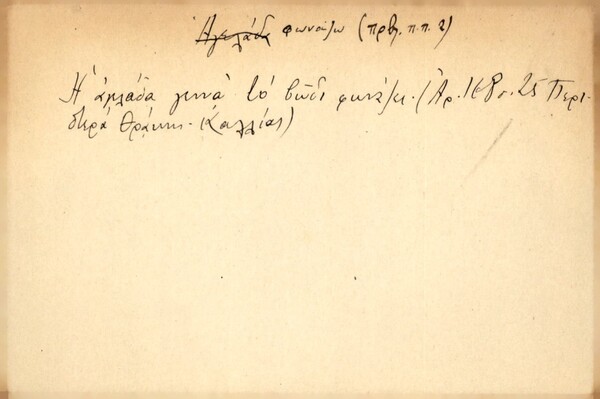 Αγελάδα φωνάζω (πρβ. π.π. 2)
Ἡ ἀγελάδα γεννᾷ τό βῶδι φωνάζει. (Ἀρ. 168 σ. 25 Περι-
στερά Θράκης - Καλλίας)